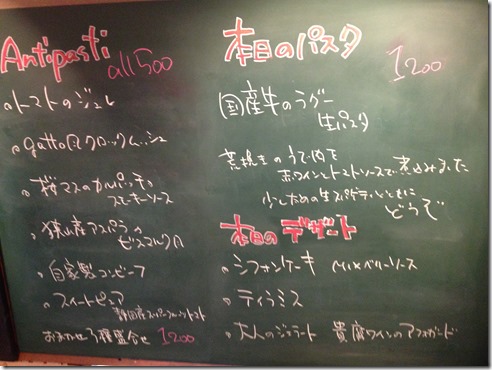 Antipasti
all 500
トマトのジュレ
gatto風クロックムッシュ
桜マスのカルパッチョ
スモーキーソース
狭山産アスパラの
ビスマルク
自家製コンビーフ
スイートピュア
静岡産スーパーフルーツトマト
おまかせ3種盛合せ 1200
本日のパスタ
1200
国産牛のラグー
生パスタ
荒挽きのうで肉を
赤ワインとトマトソースで煮込みました
少し太めの生スパゲティとともに
どうぞ
本日のデザート
シフォンケーキ Mixベリーソース
ティラミス
大人のジェラート 貴腐ワインのアフォガード